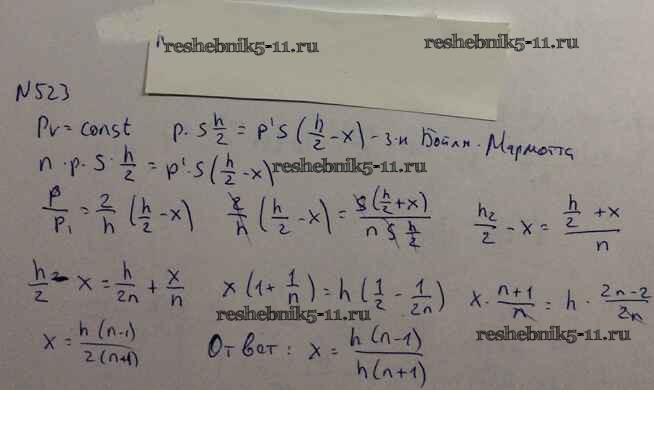 reshebnik5-11.ru reshebnik5-11.ru
N523
Pv = const p · S h/2 = p' S (h/2 - x) - з-н Бойля - Мариотта
n · p · S · h/2 = p' · S (h/2 - x) reshebnik5-11.ru
p/p₁ = 2/h (h/2 - x) 2/h (h/2 - x) = S (h/2 + x) / n S h/2 h₂/2 - x = (h/2 + x) / n
h/2 - x = h/2n + x/n x (1 + 1/n) = h (1/2 - 1/2n) x · n+1/n = h · 2n-2/2n
reshebnik5-11.ru reshebnik5-11.ru
x = h(n-1) / 2(n+1) Ответ: x = h(n-1) / h(n+1)